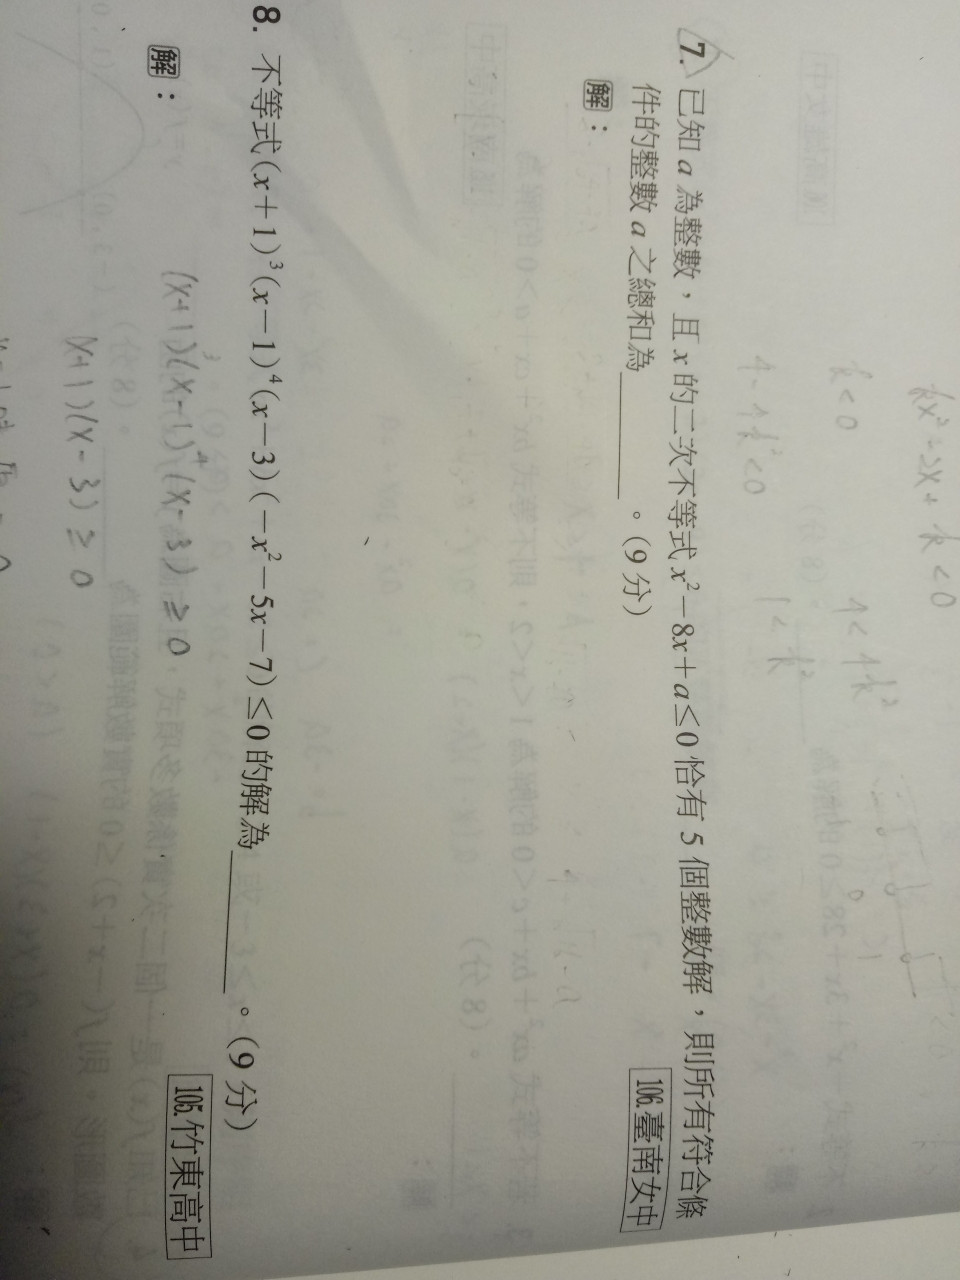 kx²-2x+k<0
k<0
4<4k²
4-4k²<0
1<k²
7. 已知 a 為整數，且 x 的二次不等式 x²－8x＋a≤0 恰有 5 個整數解，則所有符合條
件的整數 a 之總和為________。(9 分)
106.臺南女中
解：
8. 不等式(x＋1)³(x－1)⁴(x－3)(－x²－5x－7)≤0 的解為________。(9 分)
105.竹東高中
解：
(x+1)³(x-1)⁴(x-3)≥0
(x+1)(x-3)≥0